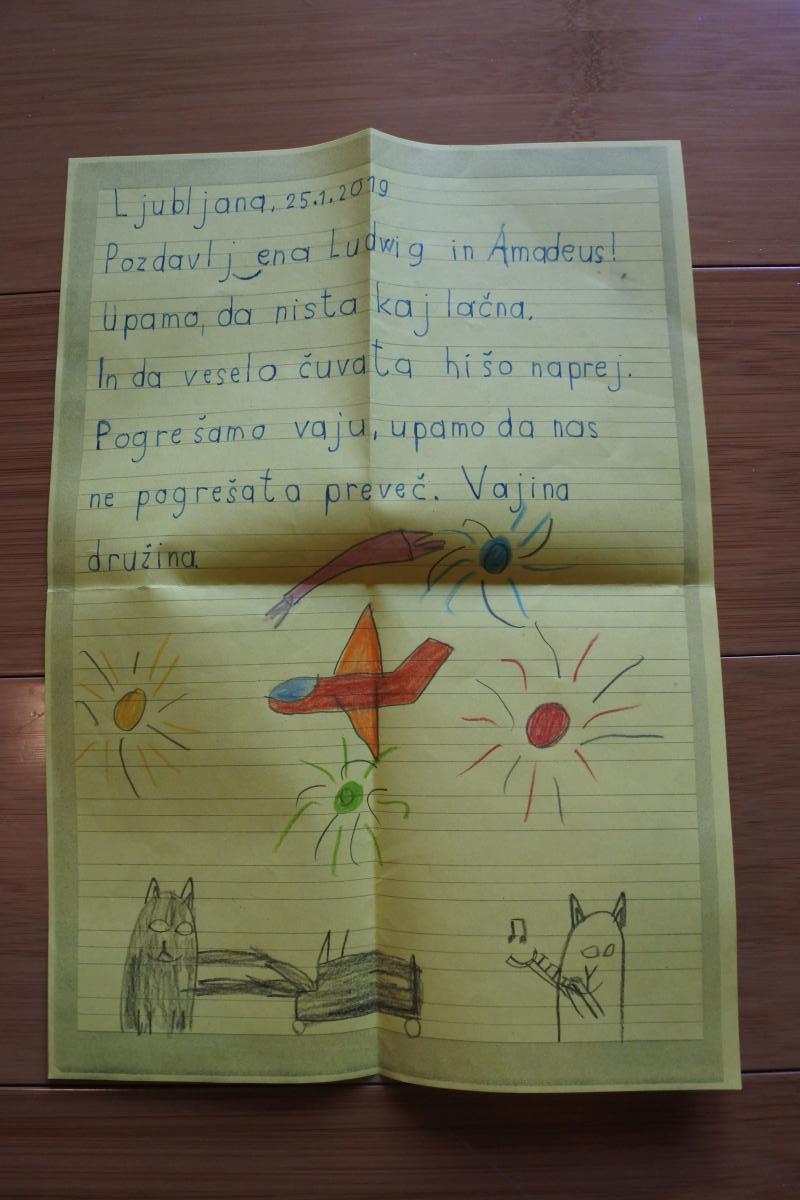 Ljubljana, 25.1.2019
Pozdavljena Ludwig in Amadeus!
Upamo, da nista kaj lačna.
In da veselo čuvata hišo naprej.
Pogrešamo vaju, upamo da nas
ne pogrešata preveč. Vajina
družina.